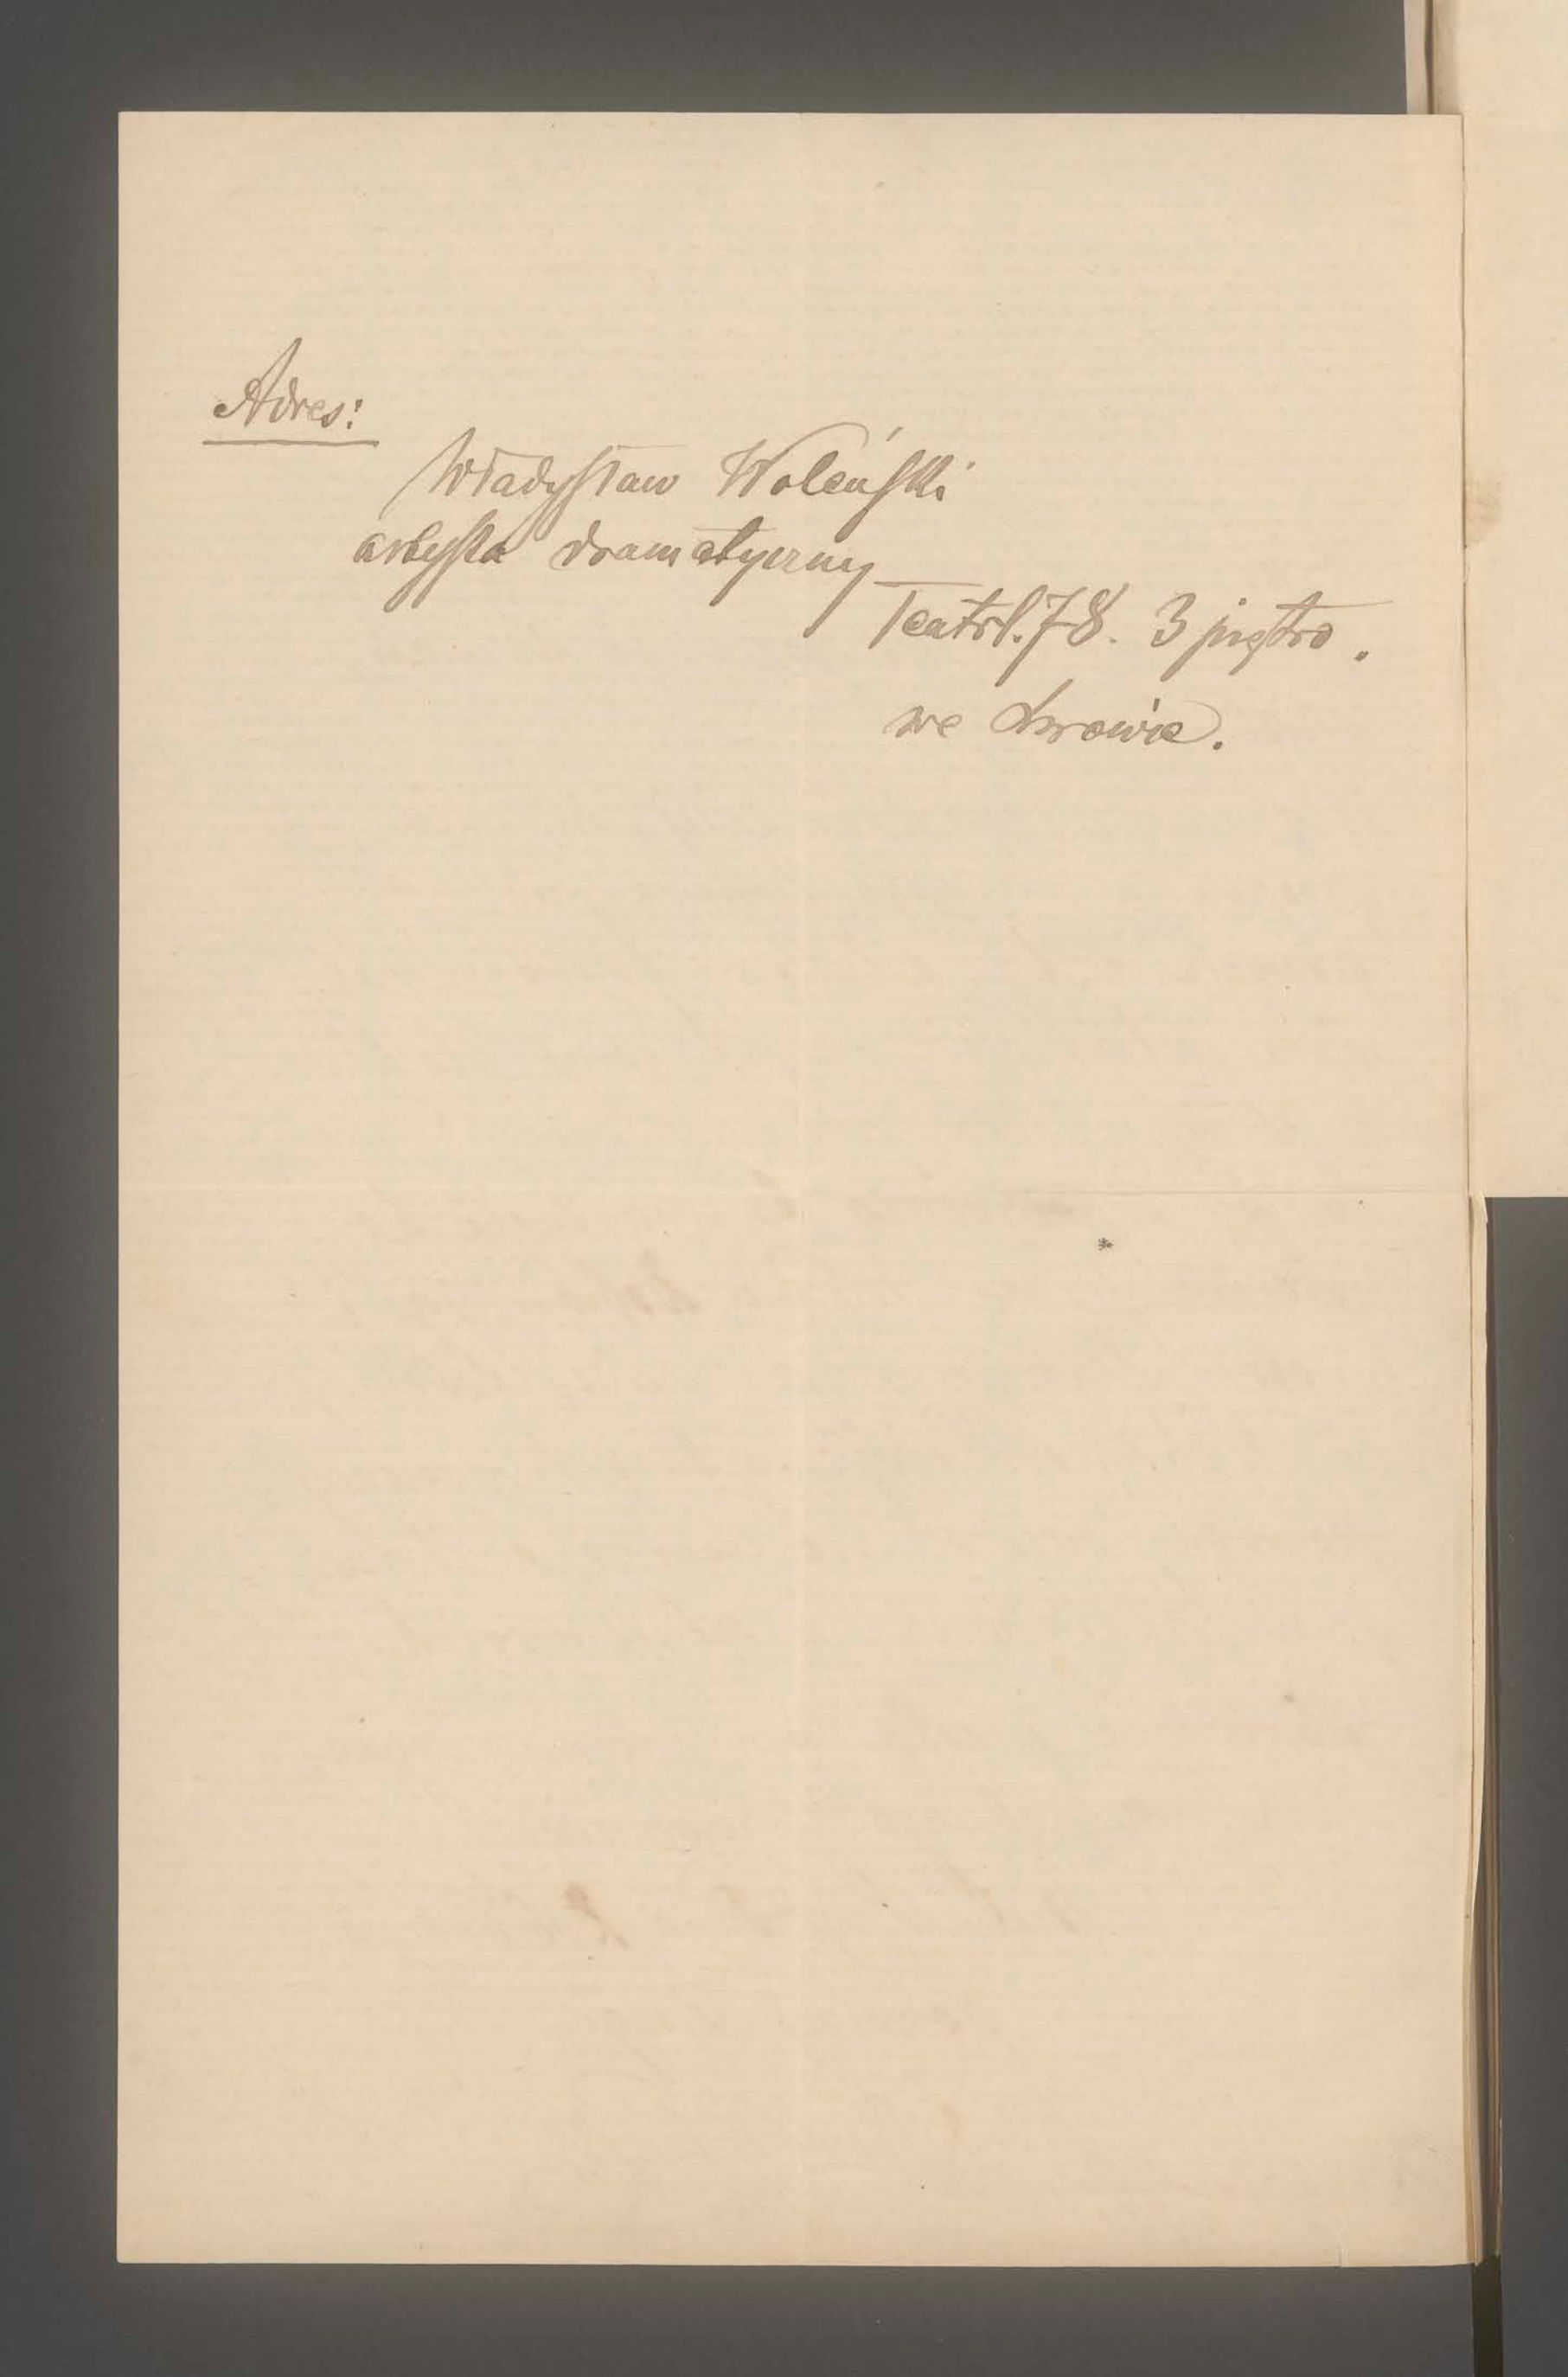 Adres:
Władysław Woleński
artysta dramatyczny
Teatr l. 78. 3 piętro.
we Lwowie.